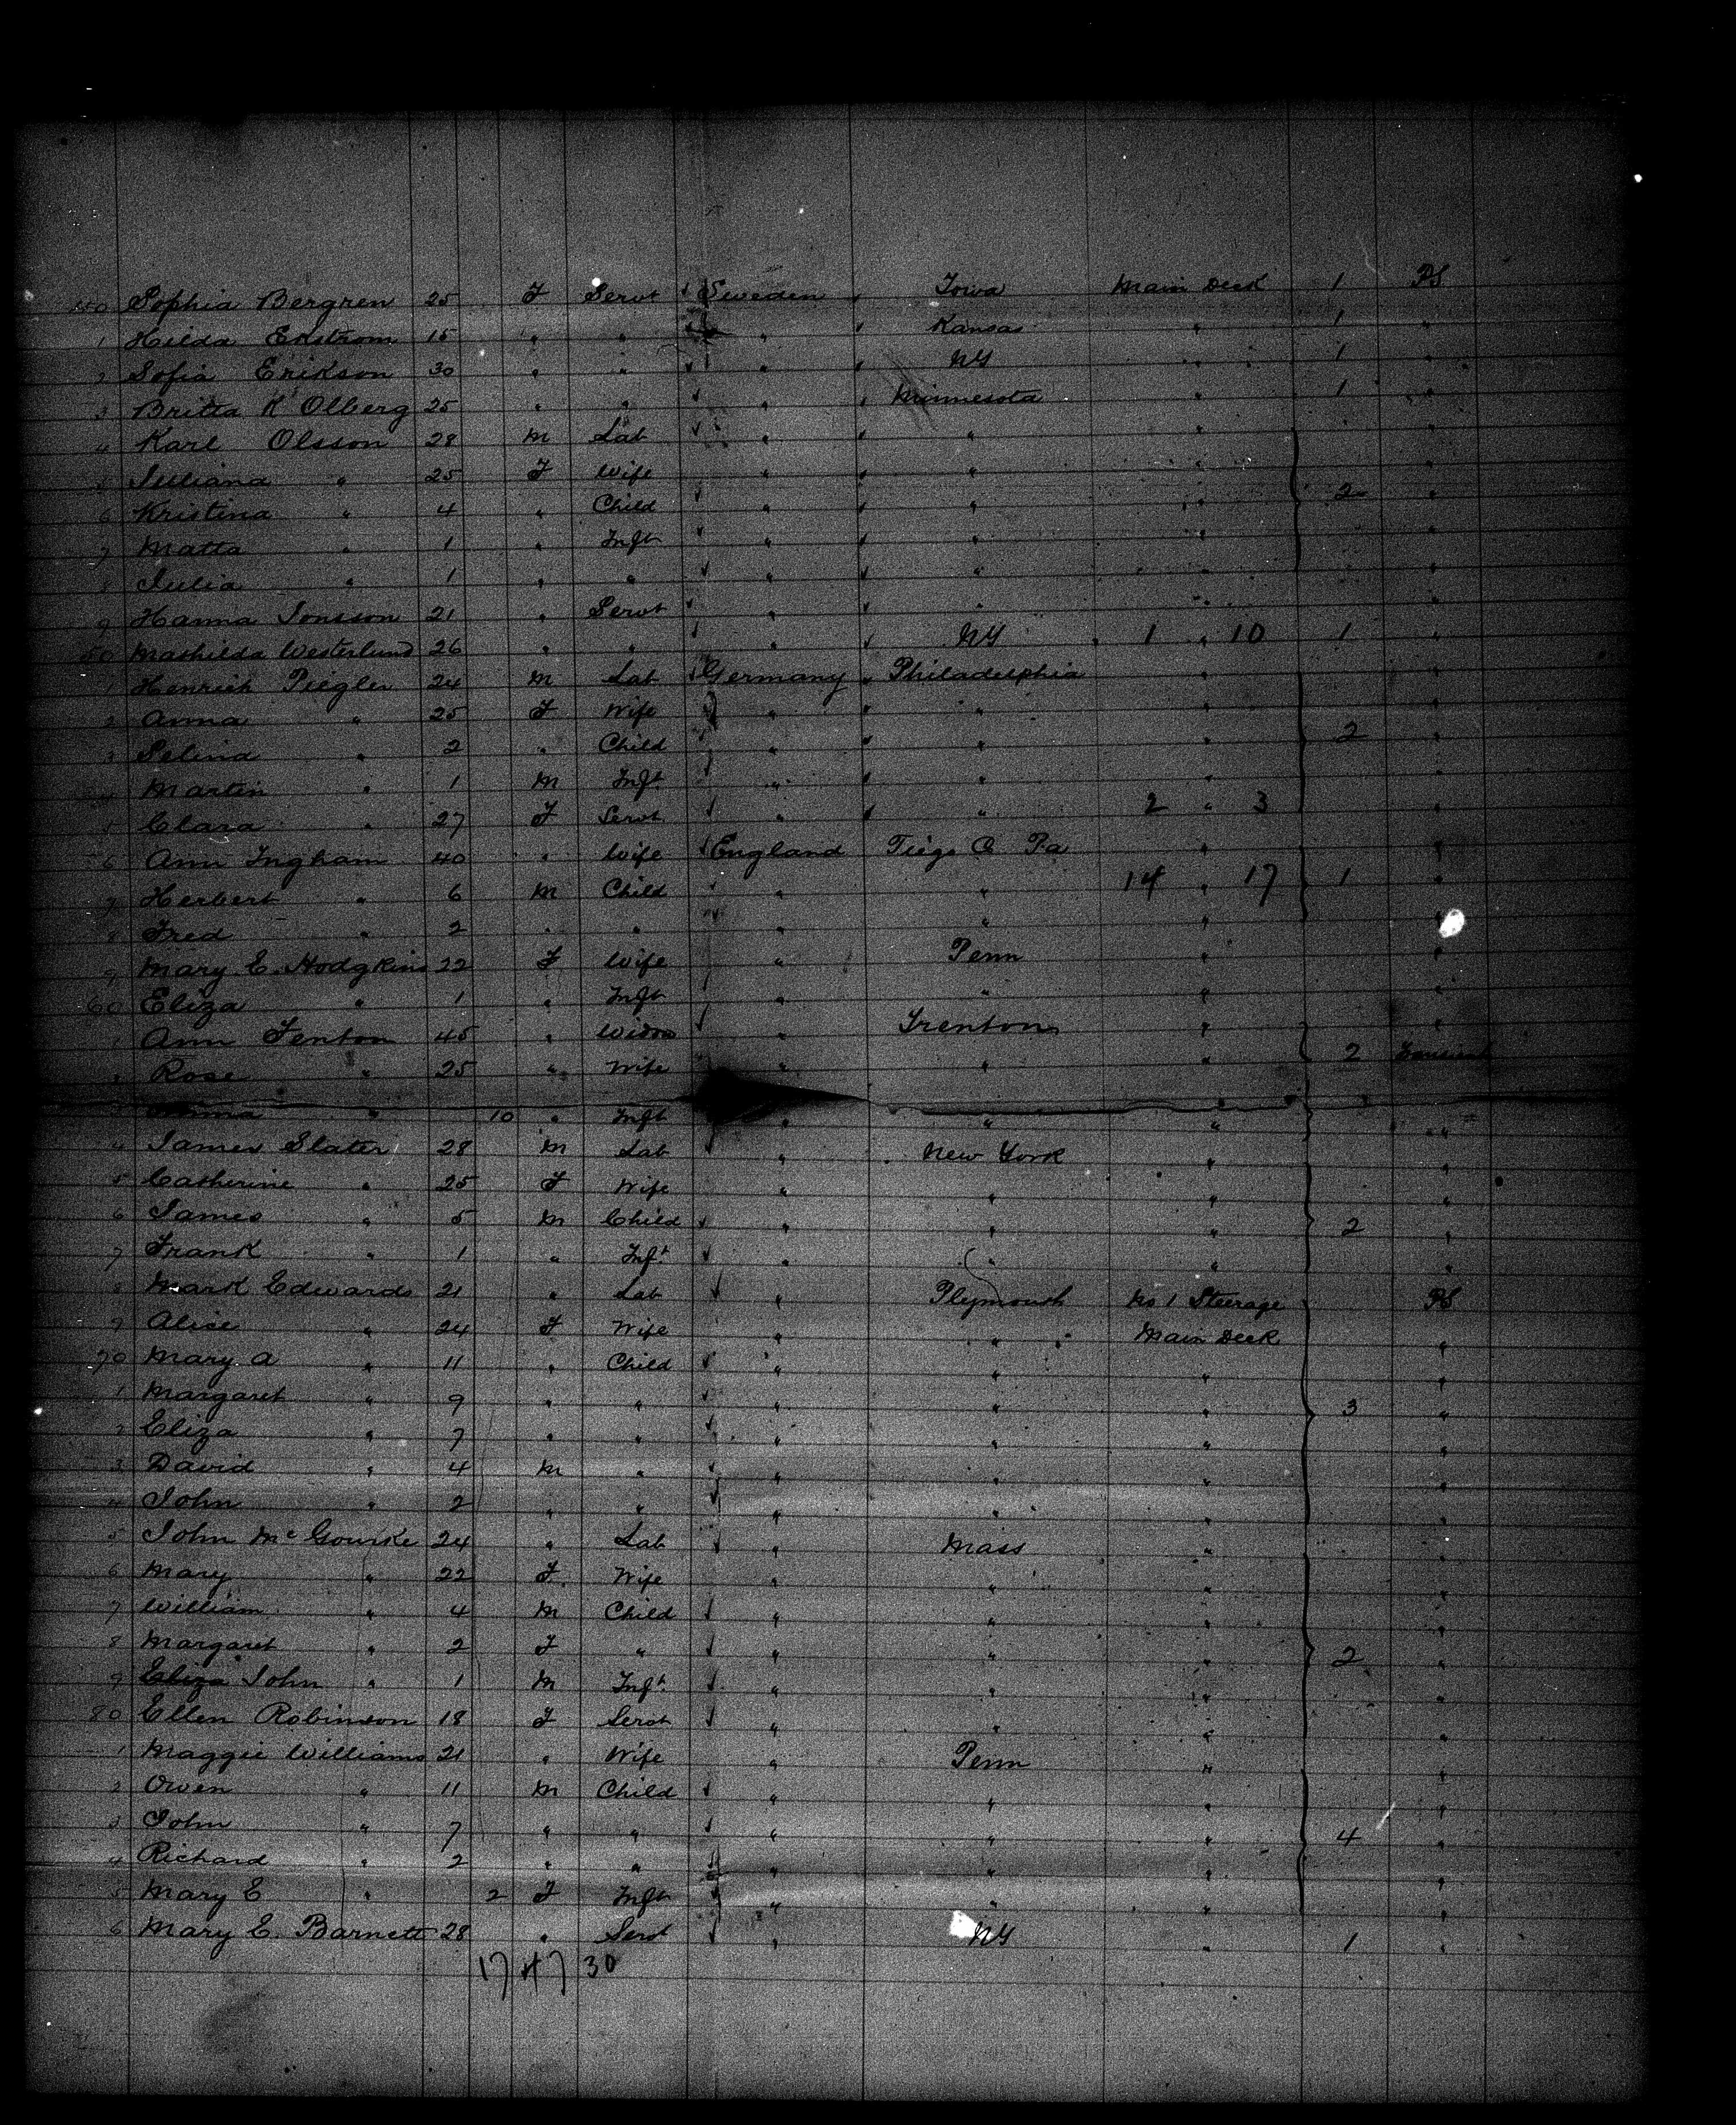 Sophia Bergren 25 F Servt Sweden Iowa Main Deck 1 PS
1 Hilda Ekstrom 15 " " " Kansas " 1 "
2 Sofia Erikson 30 " " " NY " 1 "
3 Britta K Olberg 25 " " " Minnesota " 1 "
4 Karl Olsson 28 M Lab " " " "
Juliana " 25 F Wife " " " "
6 Kristina " 4 " Child " " " 2 "
7 Matta " 1 " Inft " " " "
8 Julia " 1 " " " " " "
9 Hanna Jonsson 21 " Servt " " " "
Mathilda Westerlund 26 " " " NY 1 " 10 1 "
1 Henrich Piegler 24 M Lab Germany Philadelphia " "
2 Anna " 25 F Wife " " " "
3 Selina " 2 " Child " " " 2 "
Martin " 1 M Inft " " " "
5 Clara " 27 F Servt " " 2 " 3 "
6 Ann Ingham 40 " Wife England Pa " "
7 Herbert " 6 M Child " " 14 " 17 1 "
8 Fred " 2 " " " " " "
9 Mary E. Hodgkins 22 F Wife " Penn " "
60 Eliza " 1 " Inft " " " "
1 Ann Fenton 45 " Widow " Trenton " "
Rose " 25 " Wife " " " 2
" 10 " Inft " " " "
4 James Slater 28 M Lab " New York " "
5 Catherine " 25 F Wife " " " "
6 James " 5 M Child " " " 2 "
7 Frank " 1 " Inft " " " "
8 Mark Edwards 21 " Lab " Plymouth No 1 Steerage PS
9 Alice " 24 F Wife " " Main Deck "
70 Mary A " 11 " Child " " " "
1 Margaret " 9 " " " " " 3 "
2 Eliza " 7 " " " " " "
3 David " 4 M " " " " "
4 John " 2 " " " " " "
5 John McGourke 24 " Lab " Mass " "
6 Mary " 22 F Wife " " " "
7 William " 4 M Child " " " "
8 Margaret " 2 F " " " " 2 "
9 Eliza John " 1 M Inft " " " "
80 Ellen Robinson 18 F Servt " " " "
1 Maggie Williams 21 " Wife " Penn " "
2 Owen " 11 M Child " " " "
3 John " 7 " " " " " 4 "
4 Richard " 2 " " " " " "
5 Mary E " 2 F Inft " " " "
6 Mary E. Barnett 28 " Servt " NY " 1 "
17 47 30